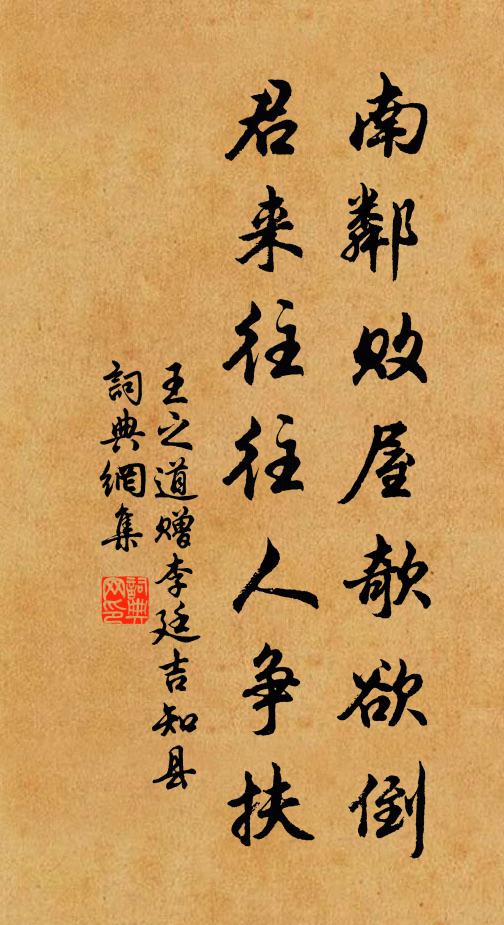 南鄰败屋欹欲倒
君来往往人争扶
王之道赠李廷吉知县
詞典網集
詞典网印